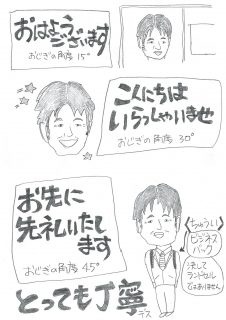 おはよう
ございます
おじぎの角度 15°
こんにちは
いらっしゃいませ
おじぎの角度 30°
お先に
先礼いたし
ます
おじぎの角度 45°
ちゅうい
ビジネス
バック
決して
ランドセル
ではありません
とっても丁寧
デス